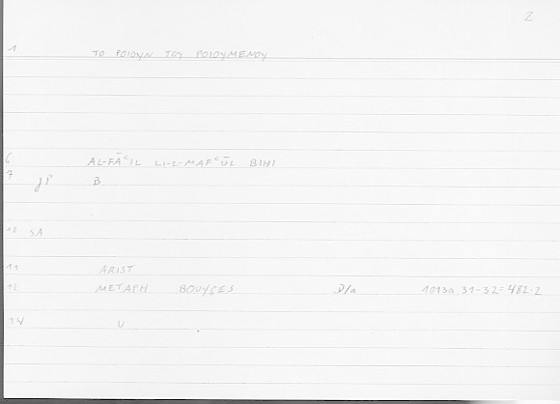 2
1 TO POIOYN TOY POIOYMENOY
6 AL-FĀʿIL LI-L-MAFʿŪL BIHI
7 B
10 SA
11 ARIST
12 METAPH BOUYGES D/a 1013a 31-32=482.2
14 U